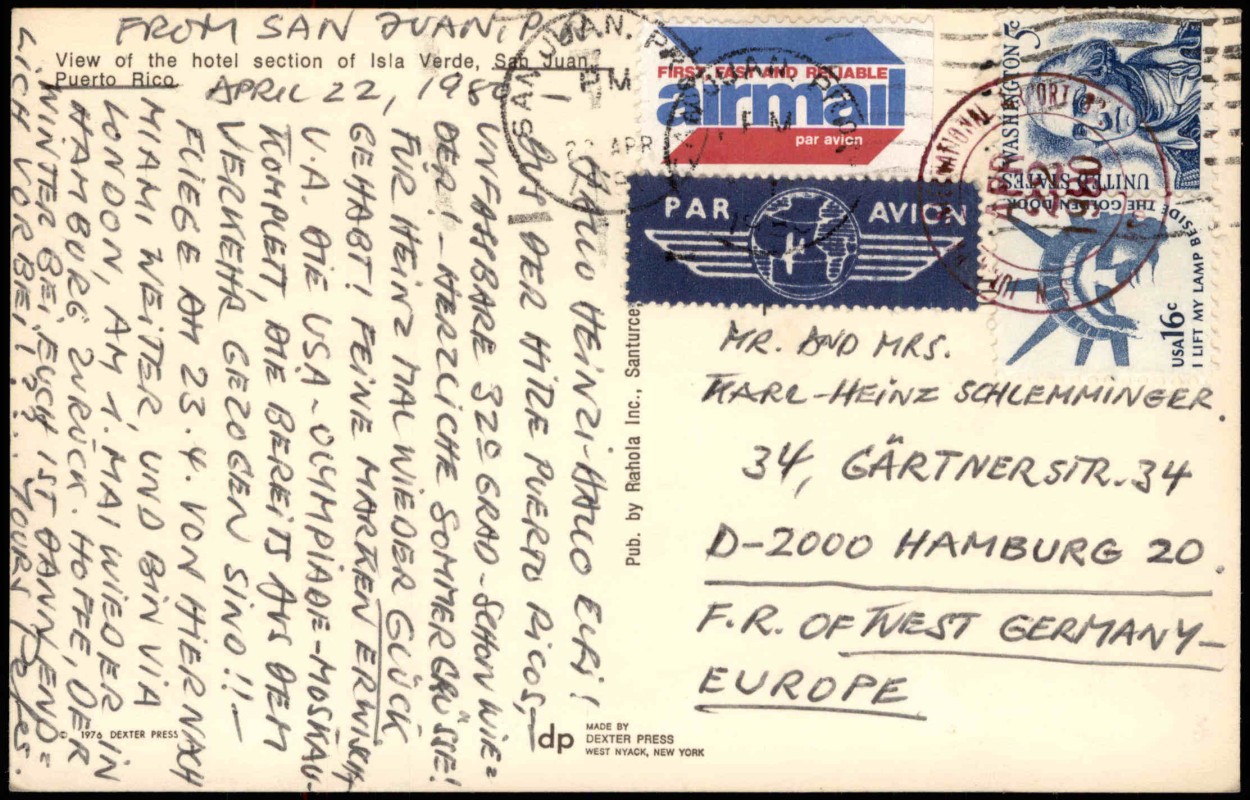 FROM SAN JUAN, P.
View of the hotel section of Isla Verde, San Juan,
Puerto Rico
APRIL 22, 1980
HALLO HEINZI-HALLO ELFI!
AUS DER HITZE PUERTO RICOS,-
UNFAßBARE 32º GRAD-SCHON WIE=
DER!-HERZLICHE SOMMERGRÜSSE!
FÜR HEINZ MAL WIEDER GLÜCK
GEHABT! FEINE MARKEN ERWISCHT,
U.A. DIE USA-OLYMPIADE-MOSKAU-
KOMPLETT, DIE BEREITS AUS DEM
VERKEHR GEZOGEN SIND!!-
FLIEGE AM 23.4. VON HIER NACH
MIAMI WEITER, UND BIN VIA
LONDON, AM 1. MAI WIEDER IN
HAMBURG ZURÜCK. HOFFE, DER
WINTER BEI EUCH IST DANN END=
LICH VORBEI, !??.. YOURS
© 1976 DEXTER PRESS
Pub. by Rahola Inc., Santurce,
dp
MADE BY
DEXTER PRESS
WEST NYACK, NEW YORK
FIRST, FAST AND RELIABLE
airmail
par avion
PAR AVION
SAN JUAN, P
PM
22 APR
PM
WASHINGTON 5c
UNITED STATES
USA 16c
I LIFT MY LAMP BESIDE THE GOLDEN DOOR
APR
22
1980
MR. AND MRS.
KARL-HEINZ SCHLEMMINGER.
34, GÄRTNERSTR. 34
D-2000 HAMBURG 20.
F.R. OF WEST GERMANY-
EUROPE